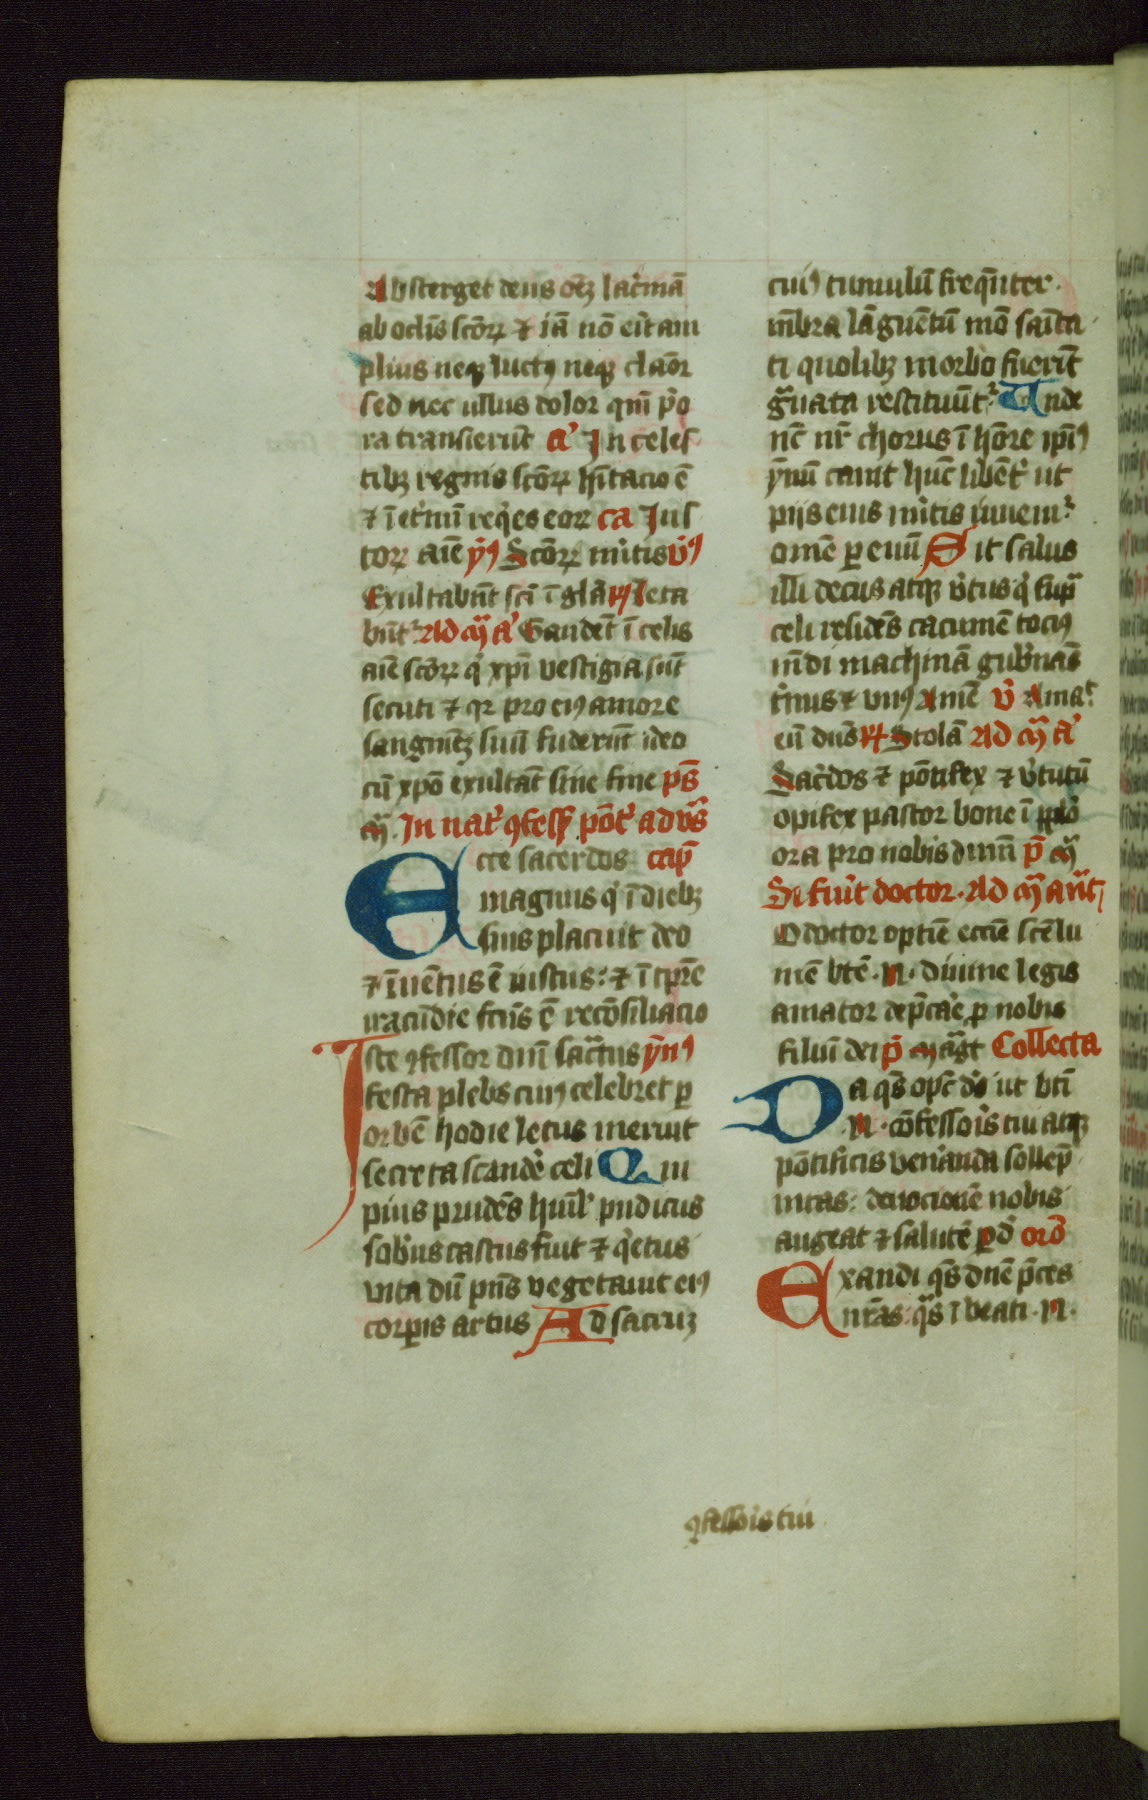 Absterget deus oēꝫ lac̄mā
ab oclis̄ scōꝝ ⁊ iā nō erit am
plius neqꝫ luctꝰ neqꝫ claōr
sed nec ullus dolor qm̄ p̄o
ra transierūt a᷒ In celes
tibꝫ regnis scōꝝ hītacio ē
⁊ ī etn̄ū req̄es eoꝝ ca Jus
toꝝ aīe ẏꝰ Scōꝝ mītis v̄ꝰ
Exultabūt scī ī glā R Leta
būt᷑ Ad m̄ a᷒ Gaudēt ī celis
aīe scōꝝ q̄ xp̄i vestigia sūt
secuti ⁊ qr pro eiꝰ amore
sanguinēꝫ suū fuderūt ideo
cū xp̄o exultāt sine fine ps̄
m̄. In nat᷒ ꝯfess̄ pōt᷒ ad vs̄
Ecce sacerdos cap̄
magnus q̄ ī diebꝫ
suis placuit deo
⁊ īuētus ē iustus: ⁊ ī tp̄re
iracūdie fc̄us ē recōsiliacio
Iste ꝯfessor dn̄i sac̄tus ẏn̄ꝰ
festa plebs cuiꝰ celebret ꝑ
orbē hodie letus meruit
secreta scandē celi Qui
pius prudēs huīl᷒ pudicus
sobrius castus fuit ⁊ q̄etus
vita dū pn̄s vegetauit eiꝰ
corꝑis artus Ad sacruꝫ
cuiꝰ tumulū freq̄nter
mēbra lāguētū mō sanita
ti quolibꝫ morbo fuerīt
gͣuata restituūt᷑ Unde
nc̄ nr̄ chorus ī hōre ip̄iꝰ
ẏmnū canit hūc libēt᷒ ut
piis eius mītis iuuem᷑
omē ꝑ euū Sit salus
illi decus atqꝫ v̄tus q̄ supͣ
celi residēs cacumē tociꝰ
mūdi machinā gubn̄ās
t̄nus ⁊ vnꝰ Amē v̄ Ama᷒
eū dn̄s R Stolā Ad m̄ a᷒
Sac̄dos ⁊ pōtifex ⁊ v̄tutū
opifex pastor bone ī ꝑꝑlo
ora pro nobis dn̄m p̄ m̄
Si fuīt doctor. Ad m̄ an̄t
O doctor optīe eccīe scē lu
mē btē .N. diuine legis
amator dep̄cāe ꝓ nobis
filiū dei p̄ magͣt Collecta
Da qs̄ op̄c dō ut btī
.N. cōfessōis tui atqꝫ
pōtificis ven̄anda sollep̄
nitas: deuocionē nobis
augeat ⁊ salutē ꝑ d̄ oro᷒
Exaudi qs̄ dn̄e p̄ces
nr̄as: qͣs ī beati .N.
ꝯfessōis tui